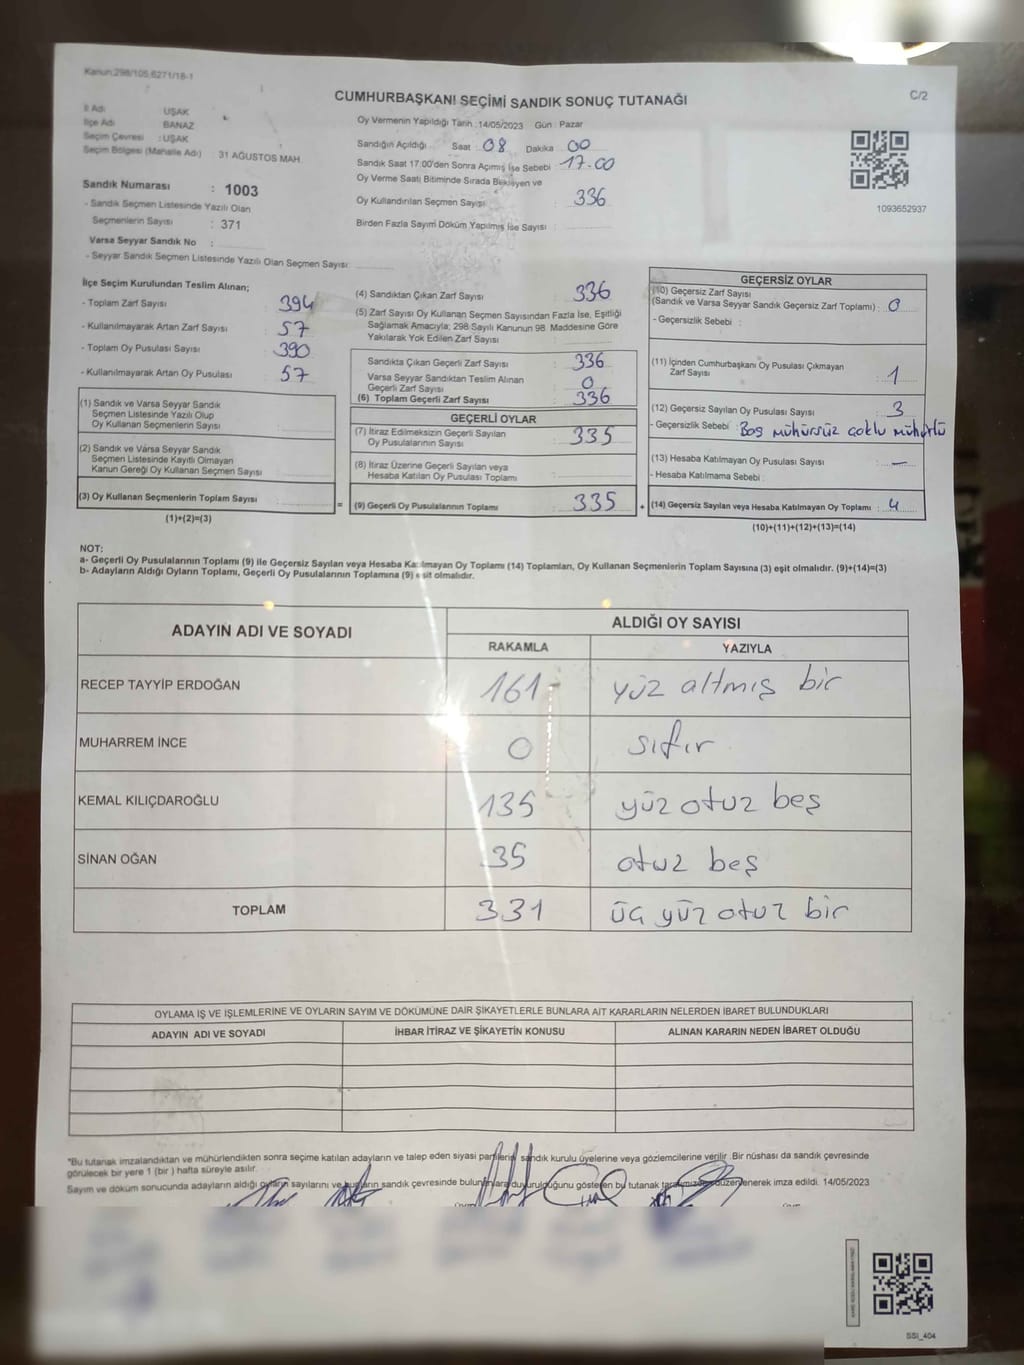 Kanun:298/105,6271/18-1
CUMHURBAŞKANI SEÇİMİ SANDIK SONUÇ TUTANAĞI
C/2
İl Adı UŞAK
İlçe Adı BANAZ
Seçim Çevresi : UŞAK
Seçim Bölgesi (Mahalle Adı) 31 AĞUSTOS MAH.
Sandık Numarası : 1003
- Sandık Seçmen Listesinde Yazılı Olan
Seçmenlerin Sayısı : 371
Varsa Seyyar Sandık No :
- Seyyar Sandık Seçmen Listesinde Yazılı Olan Seçmen Sayısı:
Oy Vermenin Yapıldığı Tarih :14/05/2023 Gün : Pazar
Sandığın Açıldığı Saat : 08 Dakika : 00
Sandık Saat 17:00'den Sonra Açılmış İse Sebebi : 17.00
Oy Verme Saati Bitiminde Sırada Bekleyen ve
Oy Kullandırılan Seçmen Sayısı : 336
Birden Fazla Sayım Döküm Yapılmış İse Sayısı :
1093652937
İlçe Seçim Kurulundan Teslim Alınan;
- Toplam Zarf Sayısı : 394
- Kullanılmayarak Artan Zarf Sayısı : 57
- Toplam Oy Pusulası Sayısı : 390
- Kullanılmayarak Artan Oy Pusulası : 57
(1) Sandık ve Varsa Seyyar Sandık
Seçmen Listesinde Yazılı Olup
Oy Kullanan Seçmenlerin Sayısı :
(2) Sandık ve Varsa Seyyar Sandık
Seçmen Listesinde Kayıtlı Olmayan
Kanun Gereği Oy Kullanan Seçmen Sayısı :
(3) Oy Kullanan Seçmenlerin Toplam Sayısı :
(1)+(2)=(3)
(4) Sandıktan Çıkan Zarf Sayısı : 336
(5) Zarf Sayısı Oy Kullanan Seçmen Sayısından Fazla İse, Eşitliği
Sağlamak Amacıyla; 298 Sayılı Kanunun 98. Maddesine Göre
Yakılarak Yok Edilen Zarf Sayısı :
Sandıkta Çıkan Geçerli Zarf Sayısı : 336
Varsa Seyyar Sandıktan Teslim Alınan
Geçerli Zarf Sayısı : 0
(6) Toplam Geçerli Zarf Sayısı : 336
GEÇERLİ OYLAR
(7) İtiraz Edilmeksizin Geçerli Sayılan
Oy Pusulalarının Sayısı : 335
(8) İtiraz Üzerine Geçerli Sayılan veya
Hesaba Katılan Oy Pusulası Toplamı :
= (9) Geçerli Oy Pusulalarının Toplamı : 335 +
GEÇERSİZ OYLAR
(10) Geçersiz Zarf Sayısı
(Sandık ve Varsa Seyyar Sandık Geçersiz Zarf Toplamı) : 0
- Geçersizlik Sebebi :
(11) İçinden Cumhurbaşkanı Oy Pusulası Çıkmayan
Zarf Sayısı : 1
(12) Geçersiz Sayılan Oy Pusulası Sayısı : 3
- Geçersizlik Sebebi : Boş mühürsüz çoklu mühürlü
(13) Hesaba Katılmayan Oy Pusulası Sayısı : —
- Hesaba Katılmama Sebebi :
(14) Geçersiz Sayılan veya Hesaba Katılmayan Oy Toplamı : 4
(10)+(11)+(12)+(13)=(14)
NOT:
a- Geçerli Oy Pusulalarının Toplamı (9) ile Geçersiz Sayılan veya Hesaba Katılmayan Oy Toplamı (14) Toplamları, Oy Kullanan Seçmenlerin Toplam Sayısına (3) eşit olmalıdır. (9)+(14)=(3)
b- Adayların Aldığı Oyların Toplamı, Geçerli Oy Pusulalarının Toplamına (9) eşit olmalıdır.
ADAYIN ADI VE SOYADI
ALDIĞI OY SAYISI
RAKAMLA YAZIYLA
RECEP TAYYİP ERDOĞAN 161 yüz altmış bir
MUHARREM İNCE 0 sıfır
KEMAL KILIÇDAROĞLU 135 yüz otuz beş
SİNAN OĞAN 35 otuz beş
TOPLAM 331 üç yüz otuz bir
OYLAMA İŞ VE İŞLEMLERİNE VE OYLARIN SAYIM VE DÖKÜMÜNE DAİR ŞİKAYETLERLE BUNLARA AİT KARARLARIN NELERDEN İBARET BULUNDUKLARI
ADAYIN ADI VE SOYADI İHBAR İTİRAZ VE ŞİKAYETİN KONUSU ALINAN KARARIN NEDEN İBARET OLDUĞU
*Bu tutanak imzalandıktan ve mühürlendikten sonra seçime katılan adayların ve talep eden siyasi partilerin sandık kurulu üyelerine veya gözlemcilerine verilir. Bir nüshası da sandık çevresinde
görülecek bir yere 1 (bir) hafta süreyle asılır.
Sayım ve döküm sonucunda adayların aldığı oyların sayılarını ve bunların sandık çevresinde bulunanlara duyurulduğunu gösteren bu tutanak tarafımızdan düzenlenerek imza edildi. 14/05/2023
SSI_404